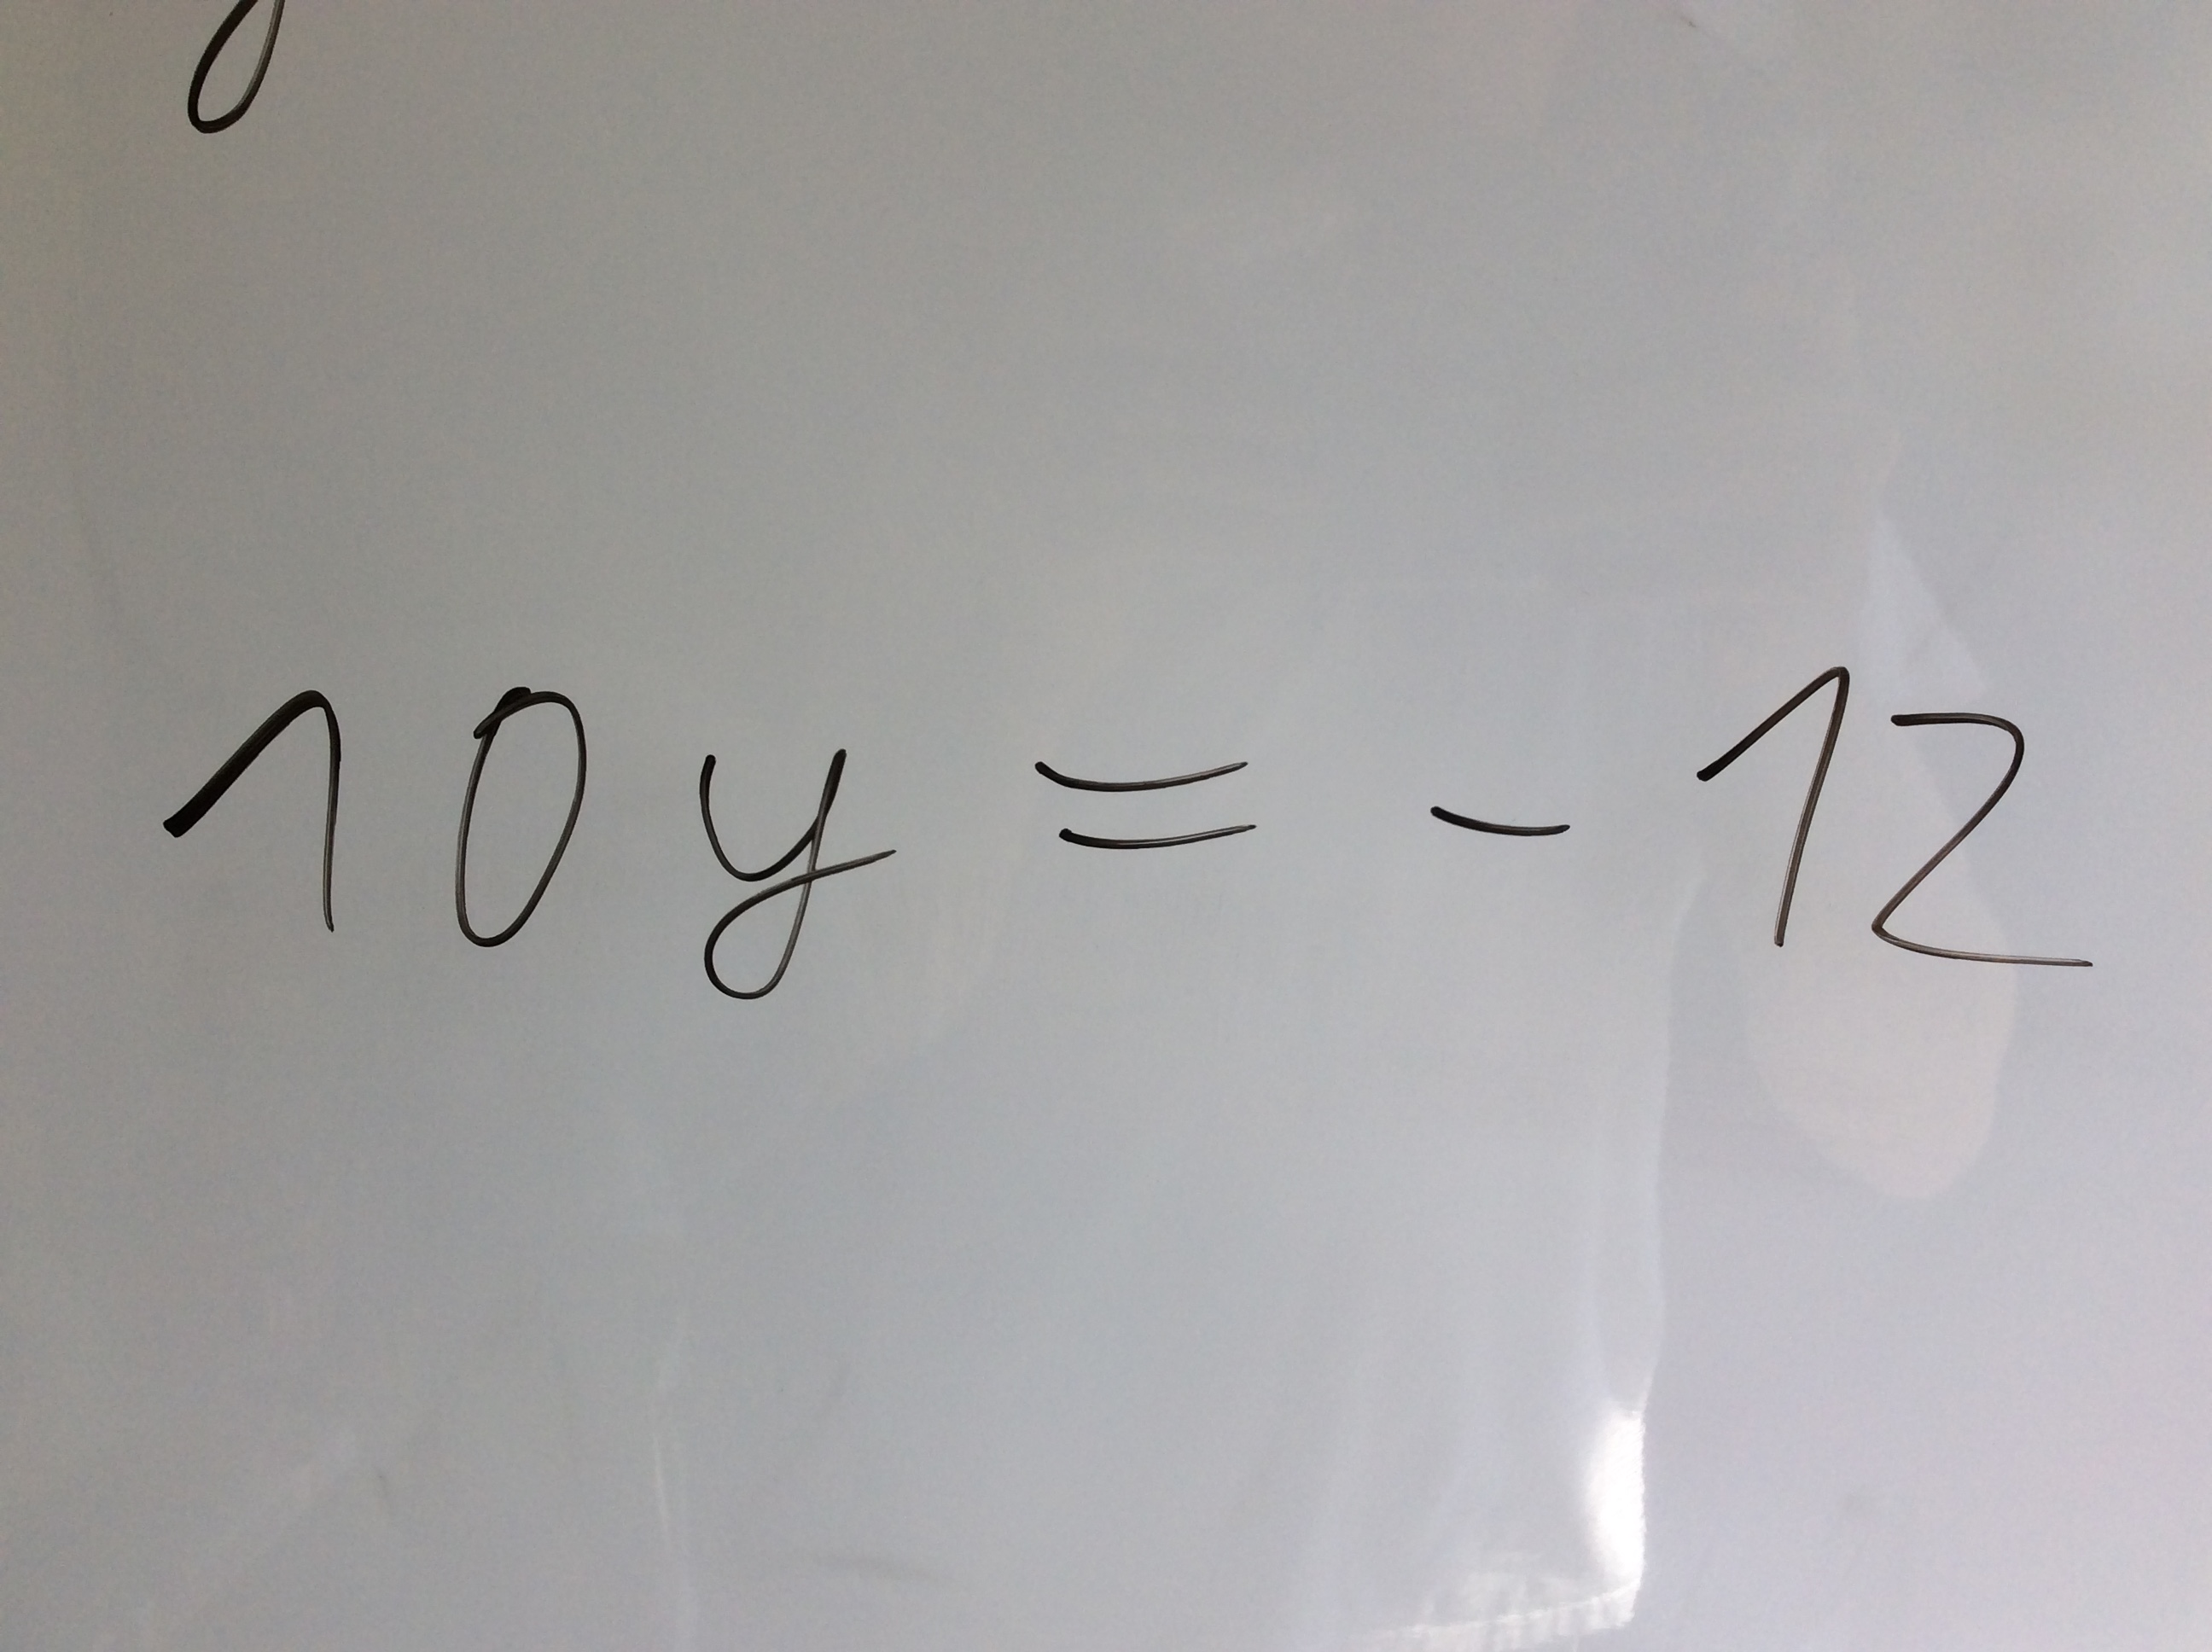 10y = -12